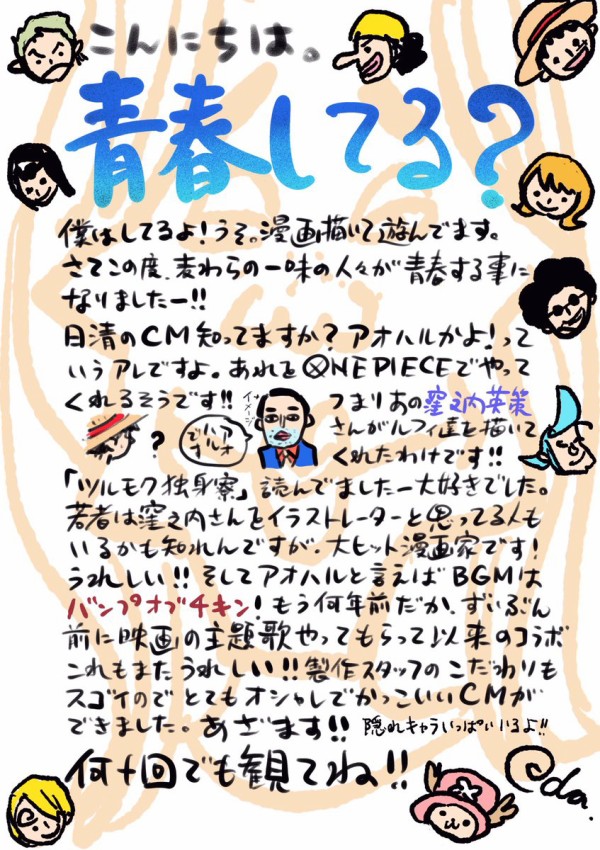 こんにちは。
青春してる?
僕はしてるよ!うそ。漫画描いて遊んでます。
さてこの度、麦わらの一味の人々が青春する事に
なりましたー!!
日清のCM知ってますか?アオハルかよ!って
いうアレですよ。あれをONE PIECEでやって
くれるそうです!!
イメージ
つまりあの窪之内英策
さんがルフィ達を描いて
くれたわけです!!
?
アオハルです
「ツルモク独身寮」読んでましたー大好きでした。
若者は窪之内さんをイラストレーターと思ってる人も
いるかも知れんですが、大ヒット漫画家です!
うれしい!!そしてアオハルと言えばBGMは
バンプオブチキン!もう何年前だか、ずいぶん
前に映画の主題歌やってもらって以来のコラボ
これもまたうれしい!!製作スタッフのこだわりも
スゴイのでとてもオシャレでかっこいいCMが
できました。あざます!!隠れキャラいっぱいいるよ!!
何十回でも観てね!!
Oda.